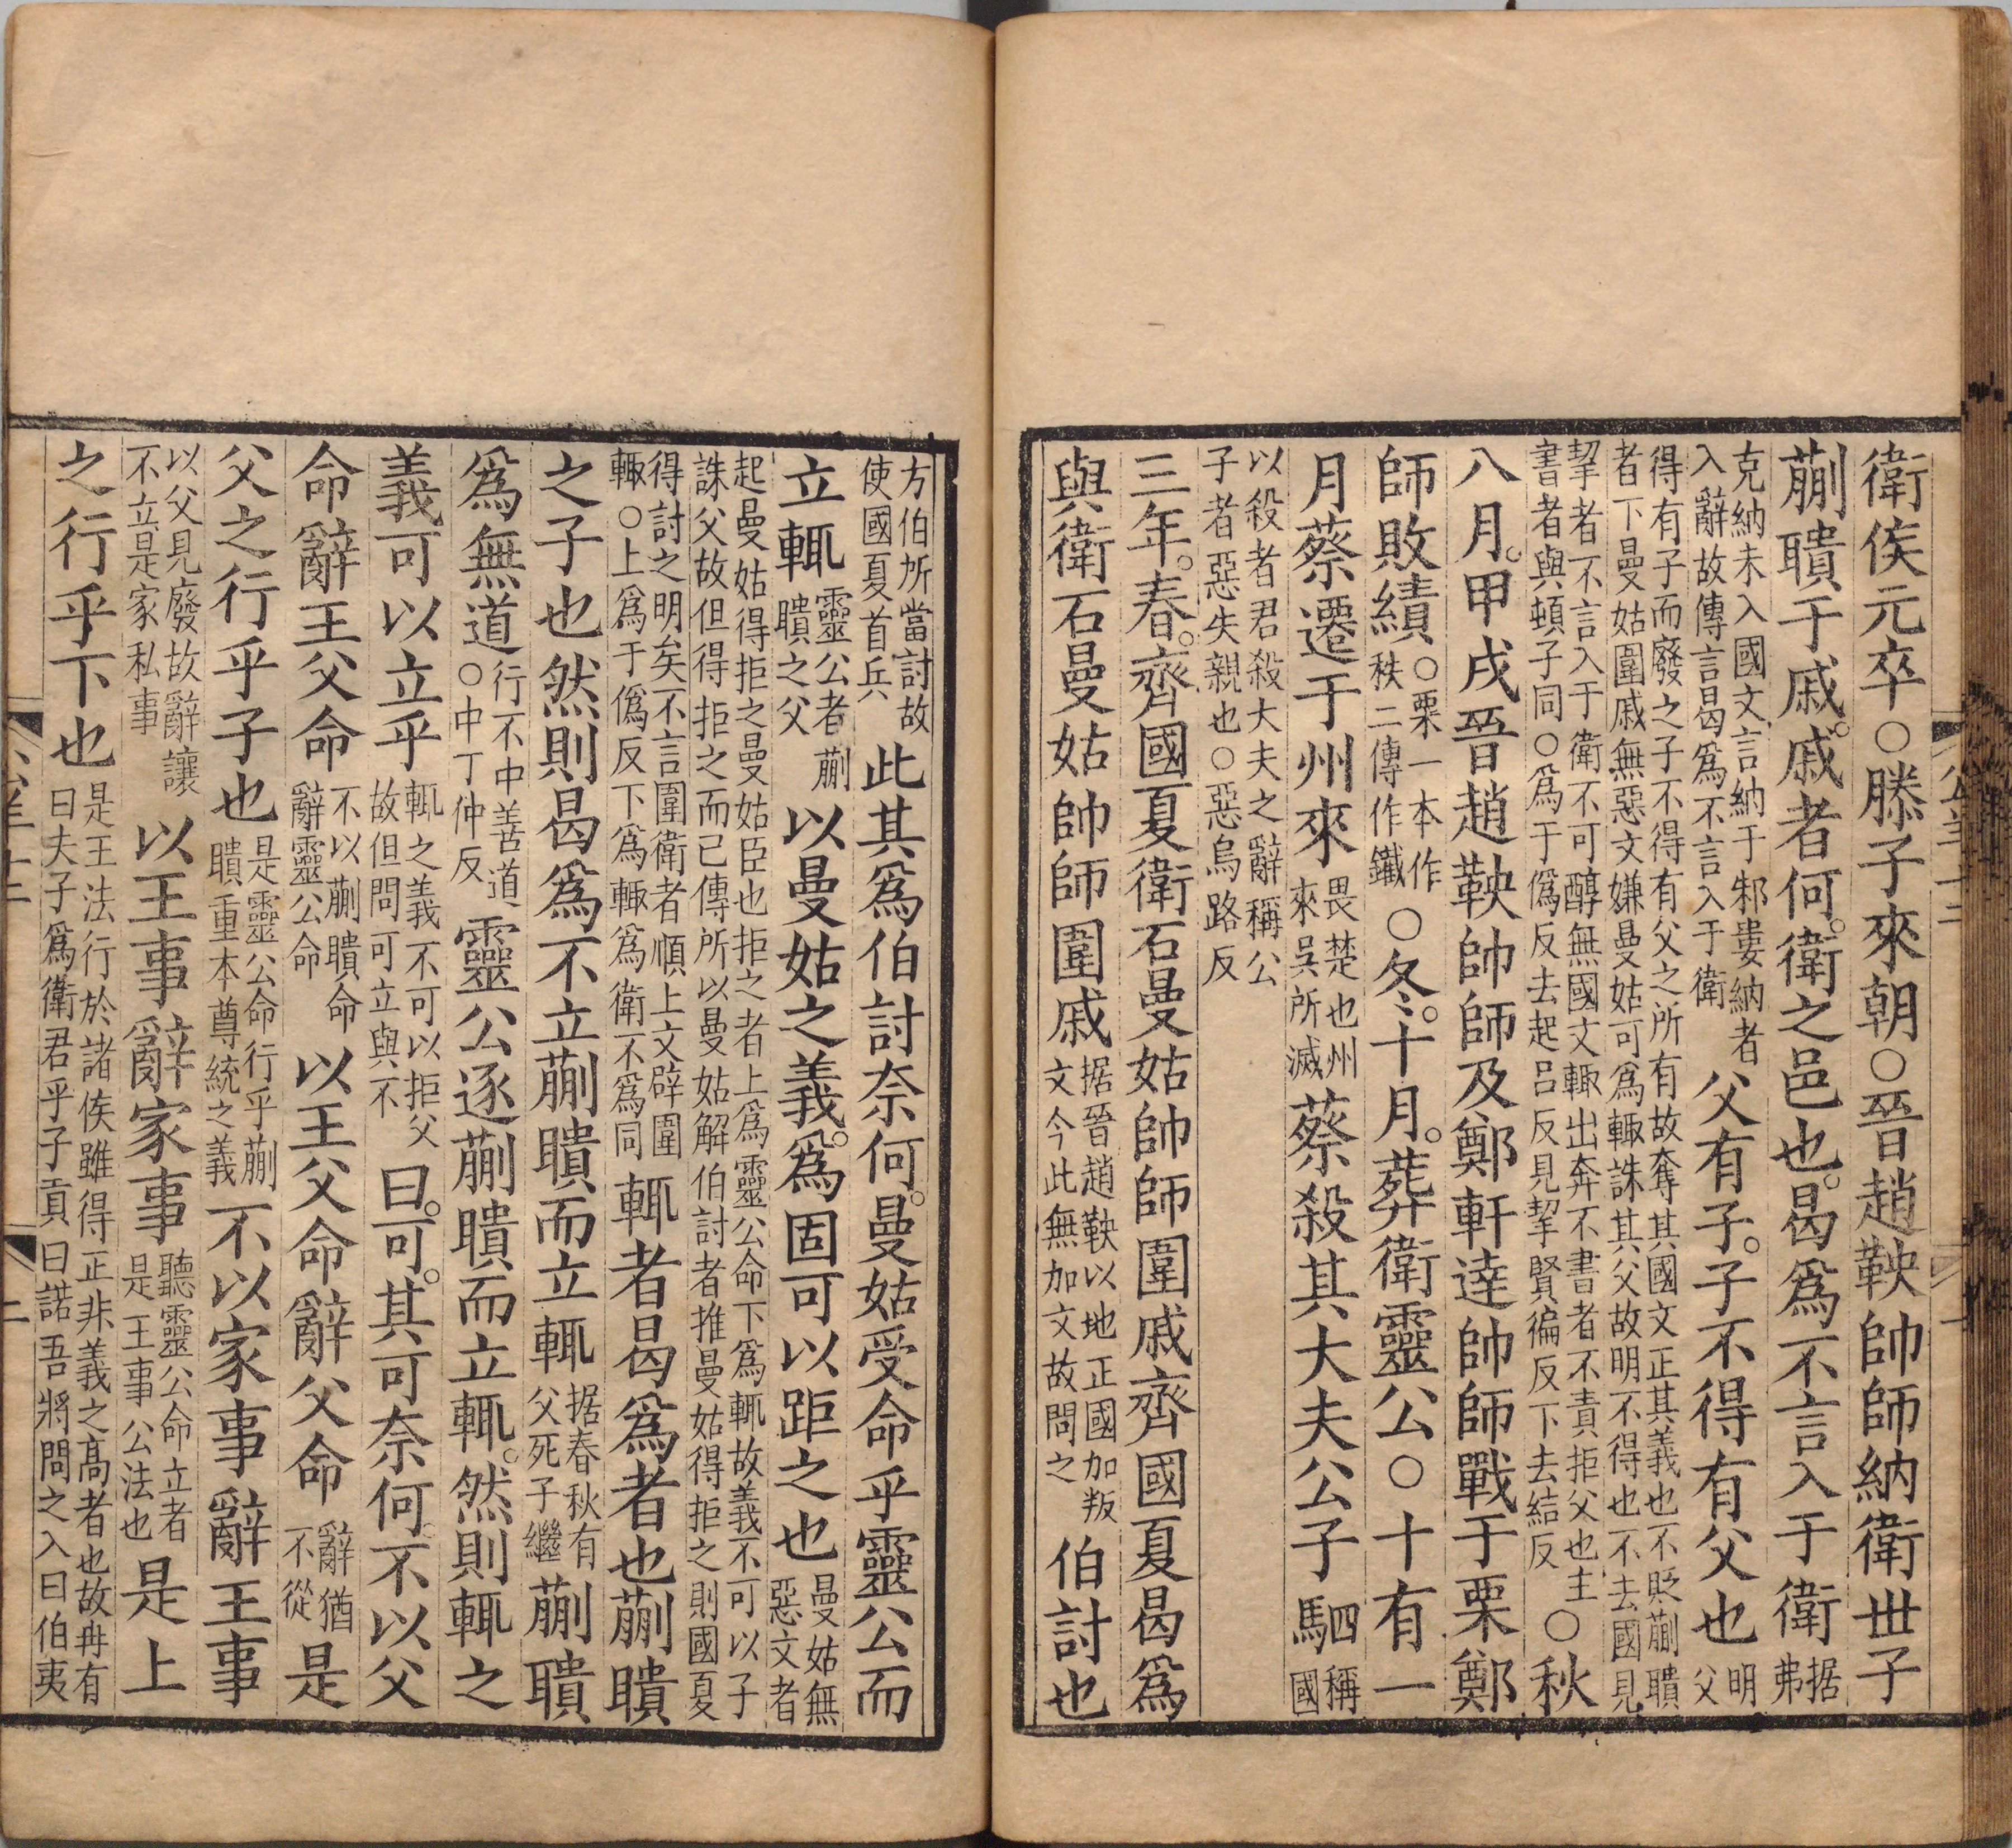 衛侯元卒○滕子來朝○晉趙鞅帥師納衛世子
蒯聵于戚。戚者何。衛之邑也。曷爲不言入于衛據弗
克納未入國文言納于邾婁納者
入辭故傳言曷爲不言入于衛
父有子。子不得有父也明父
得有子而廢之子不得有父之所有故奪其國文正其義也不貶蒯聵
者下曼姑圍戚無惡文嫌曼姑可爲輒誅其父故明不得也不去國見
挈者不言入于衛不可醇無國文輒出奔不書者不責拒父也主
書者與頓子同○爲于僞反去起呂反見挈賢徧反下去結反
○秋
八月。甲戌晉趙鞅帥師及鄭軒達帥師戰于栗鄭
師敗績○栗一本作秩二傳作鐵○冬。十月。葬衛靈公○十有一
月蔡遷于州來畏楚也州來吳所滅蔡殺其大夫公子駟稱國
以殺者君殺大夫之辭稱公
子者惡失親也○惡烏路反
三年。春。齊國夏衛石曼姑帥師圍戚齊國夏曷爲
與衛石曼姑帥師圍戚据晉趙鞅以地正國加叛文今此無加文故問之伯討也
方伯所當討故使國夏首兵此其爲伯討奈何。曼姑受命乎靈公而
立輒靈公者蒯聵之父以曼姑之義。爲固可以距之也曼姑無惡文者
起曼姑得拒之曼姑臣也拒之者上爲靈公命下爲輒故義不可以子
誅父故但得拒之而已傳所以曼姑解伯討者推曼姑得拒之則國夏
得討之明矣不言圍衛者順上文辟圍
輒○上爲于僞反下爲輒爲衛不爲同
輒者曷爲者也蒯聵
之子也然則曷爲不立蒯聵而立輒据春秋有父死子繼蒯聵
爲無道行不中善道○中丁仲反靈公逐蒯聵而立輒。然則輒之
義可以立乎輒之義不可以拒父故但問可立與不曰。可。其可奈何。不以父
命辭王父命不以蒯聵命辭靈公命以王父命辭父命辭猶不從是
父之行乎子也是靈公命行乎蒯聵重本尊統之義不以家事辭王事
以父見廢故辭讓不立是家私事以王事辭家事聽靈公命立者是王事公法也是上
之行乎下也是王法行於諸侯雖得正非義之高者也故冉有曰夫子爲衛君乎子貢曰諾吾將問之入曰伯夷